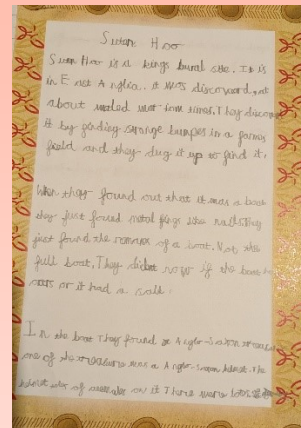 Sutton Hoo
Sutton Hoo is a kings bural site. It is
in East Anglia. it was discovered at
about world war times. They discove
it by finding strange bumpes in a farmes
feeld and they dug it up to find it.
When they found out that it was a boat
they just found metal fings like nails. They
just found the remanes of a boat. Not the
full boat. They didnt now if the boat
oars or it had a sail.
In the boat They found
one of the treasure was a Anglo-Saxon helmet. The
helmet on it There were lots